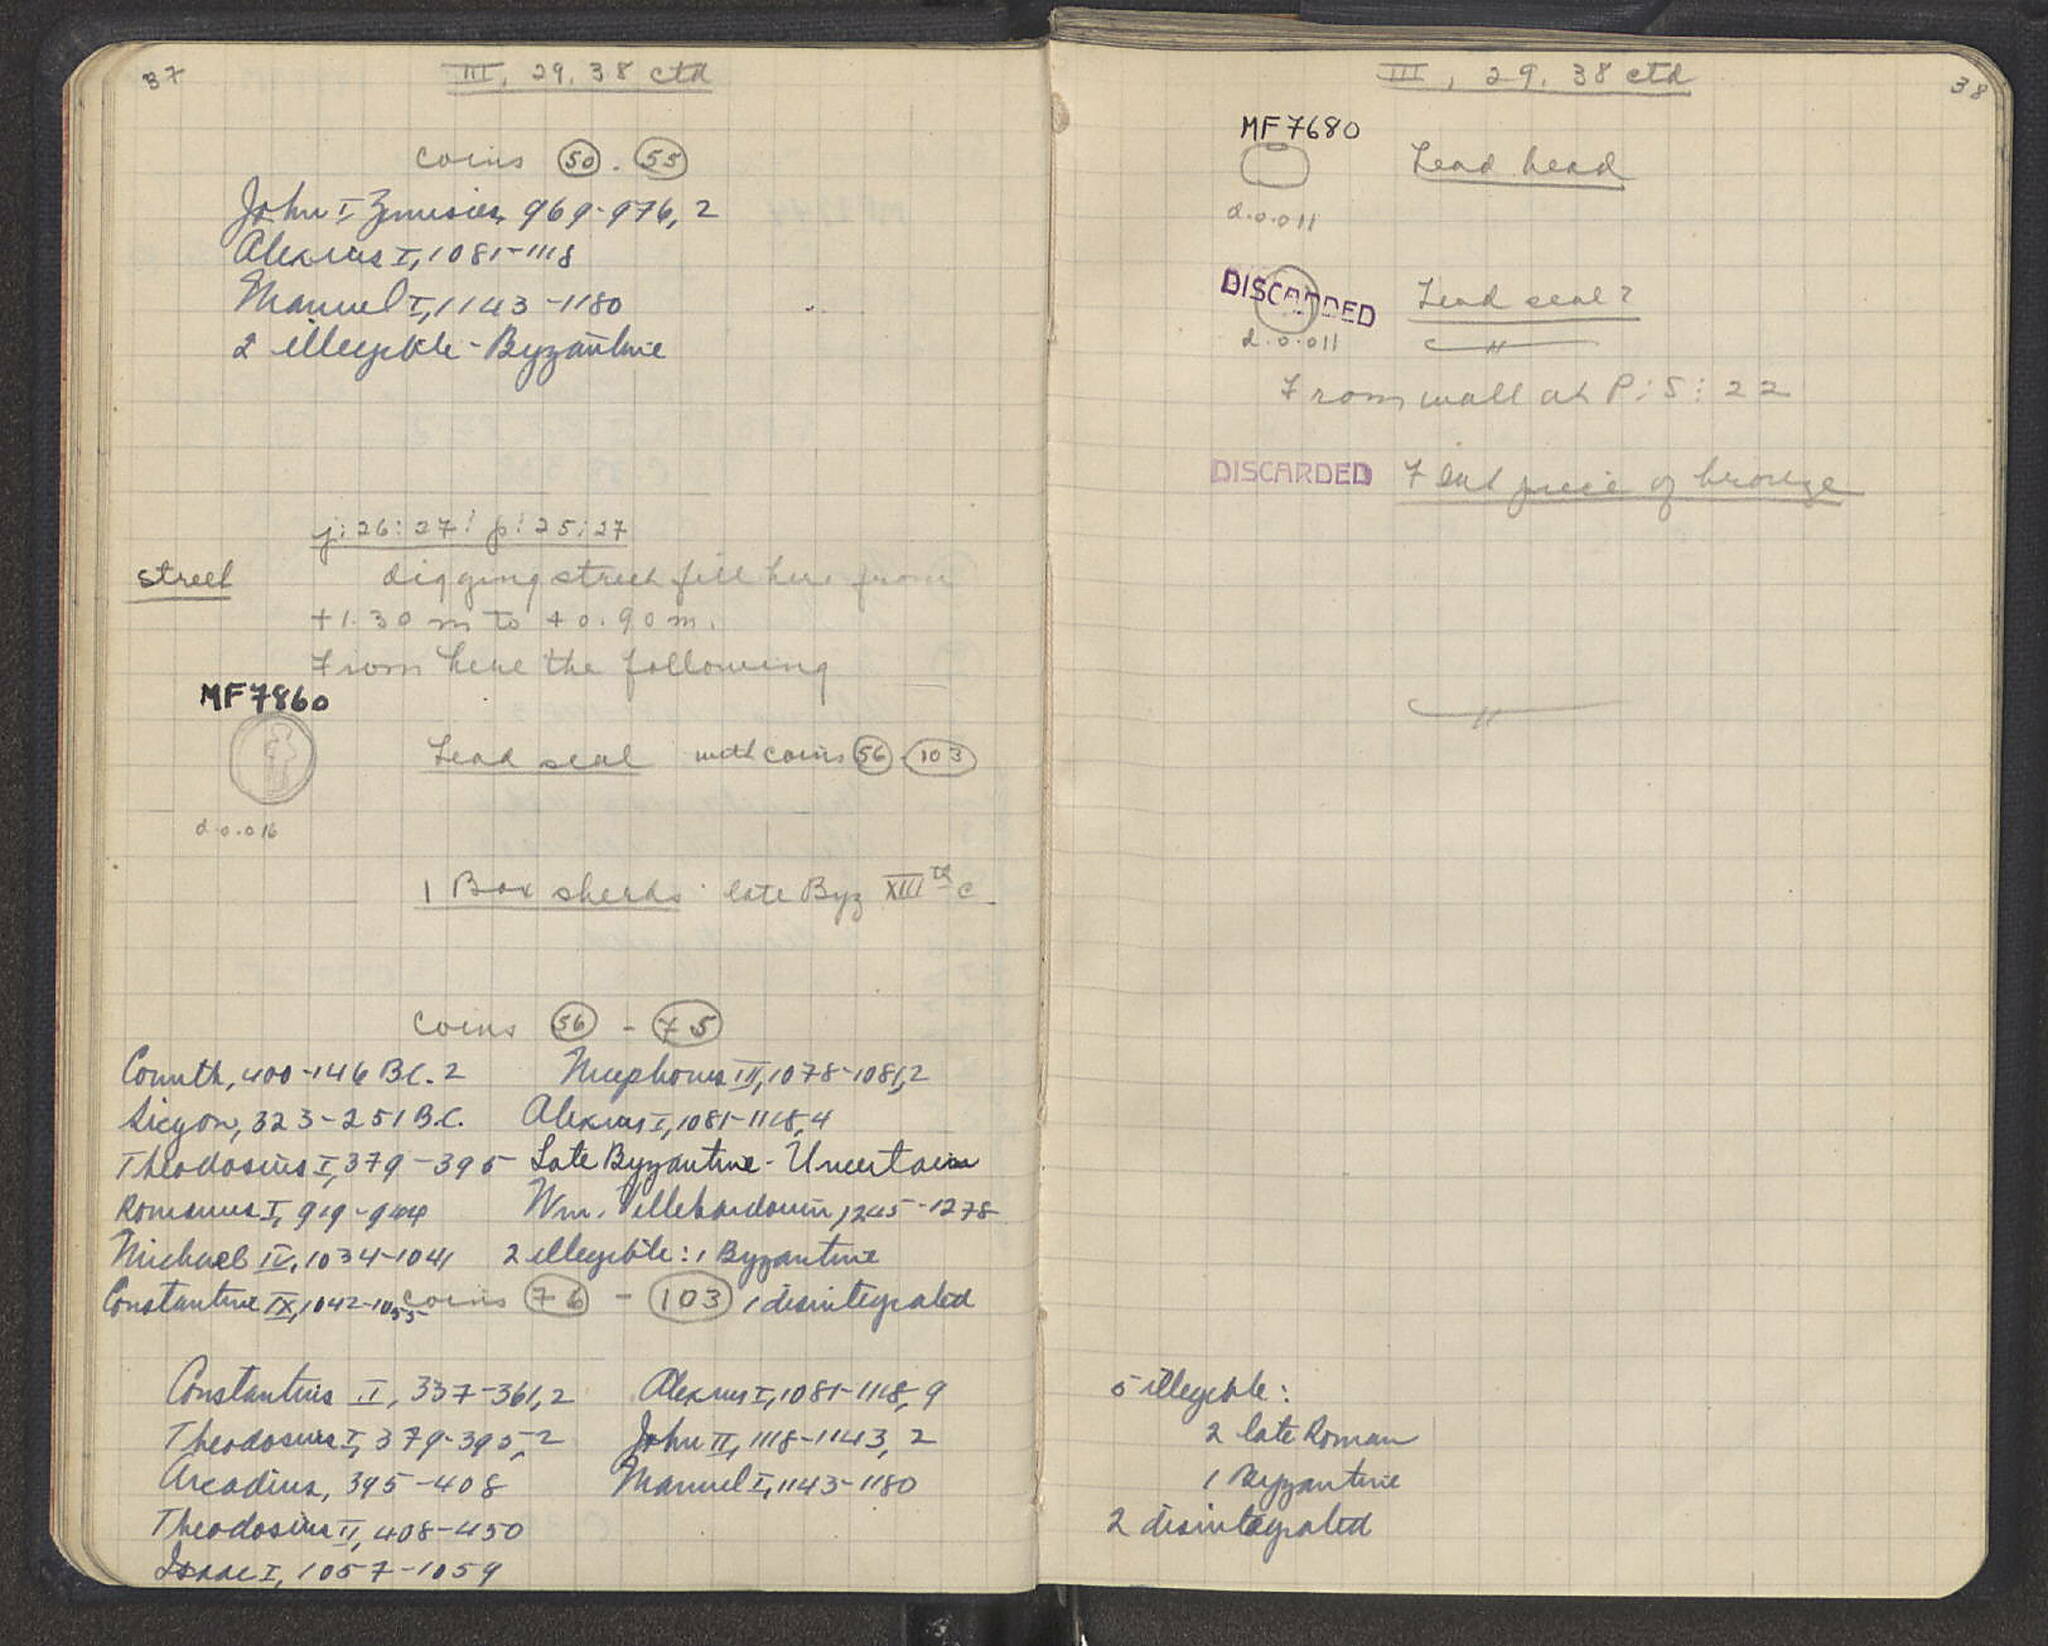 37
III, 29. 38 ctd
coins 50 - 55
John I Zimisces, 969-976, 2
Alexius I, 1081-1118
Manuel I, 1143-1180
2 illegible - Byzantine
j:26:27! p:25:27
street
digging street fill here from
+1.30 m to +0.90 m.
From here the following
MF7860
Lead seal with coins 56 - 103
d.0.016
1 Box sherds late Byz XIIIth c
coins 56 - 75
Corinth, 400-146 B.C. 2 Nicephorus III, 1078-1081, 2
Sicyon, 323-251 B.C. Alexius I, 1081-1118, 4
Theodosius I, 379-395 Late Byzantine - Uncertain
Romanus I, 919-944 Wm. Villehardouin, 1245-1278
Michael IV, 1034-1041 2 illegible: 1 Byzantine
Constantine IX, 1042-1055 1 disintegrated
coins 76 - 103
Constantius II, 337-361, 2 Alexius I, 1081-1118, 9
Theodosius I, 379-395, 2 John II, 1118-1143, 2
Arcadius, 395-408 Manuel I, 1143-1180
Theodosius II, 408-450
Isaac I, 1057-1059
III, 29. 38 ctd
38
MF7680
Lead bead
d.0.011
DISCARDED
Lead seal?
d.0.011
"
From wall at P:5:22
DISCARDED
Flat piece of bronze
"
5 illegible:
2 late Roman
1 Byzantine
2 disintegrated